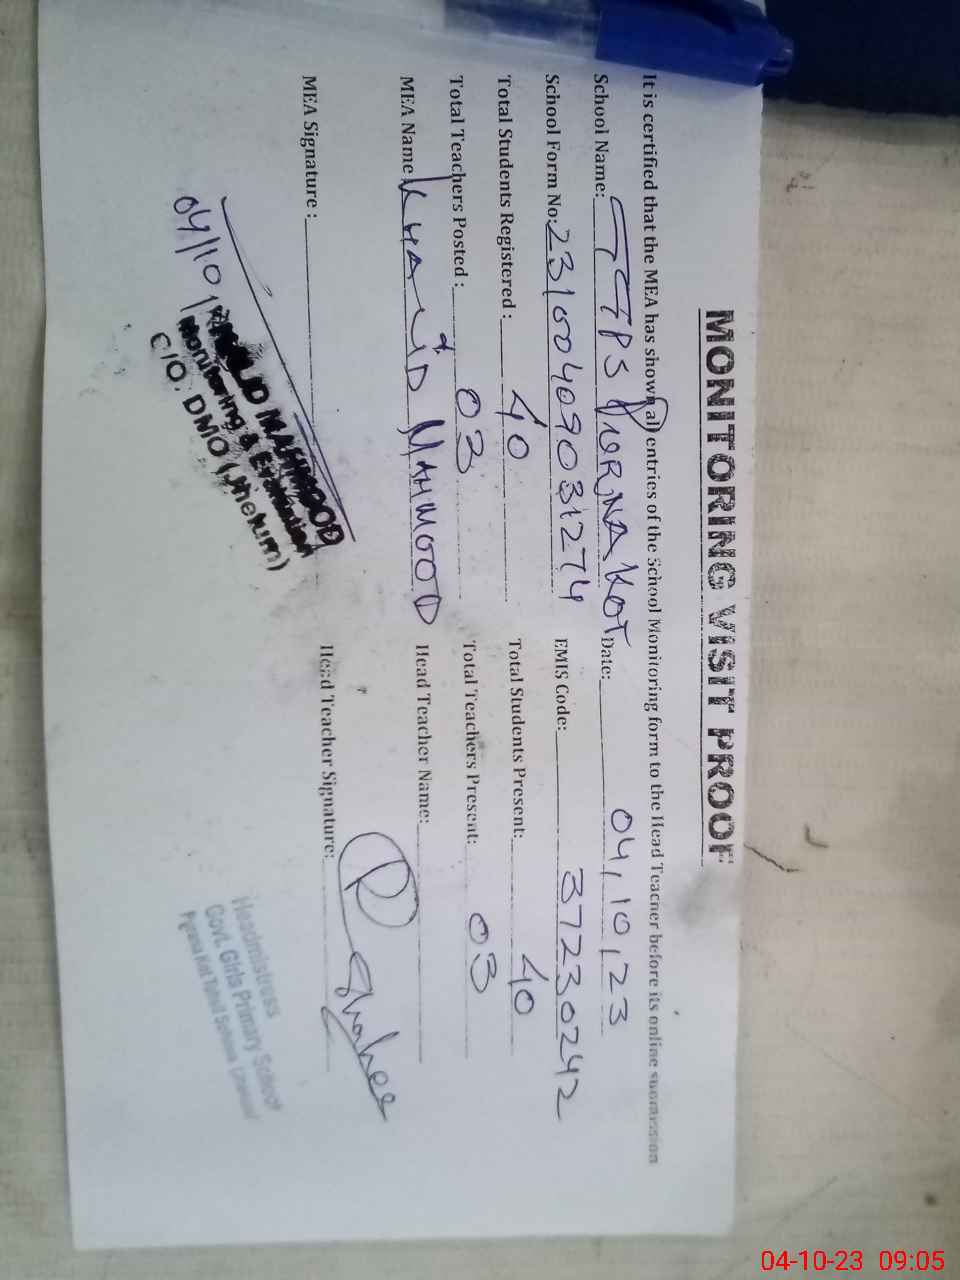 MONITORING VISIT PROOF
It is certified that the MEA has shown all entries of the School Monitoring form to the Head Teacher before its online submission
School Name: GGPS PIORNA KOT Date: 04,10,23
School Form No: 23100409031274 EMIS Code: 37230242
Total Students Registered: 40 Total Students Present: 40
Total Teachers Posted: 03 Total Teachers Present: 03
MEA Name KHALID MAHMOOD Head Teacher Name:
MEA Signature: Head Teacher Signature:
04/10
KHALID MAHMOOD
Monitoring & Evaluation
C/O, DMO (Jhelum)
Headmistress
Govt. Girls Primary School
Kot Tehsil Sohawa
04-10-23 09:05